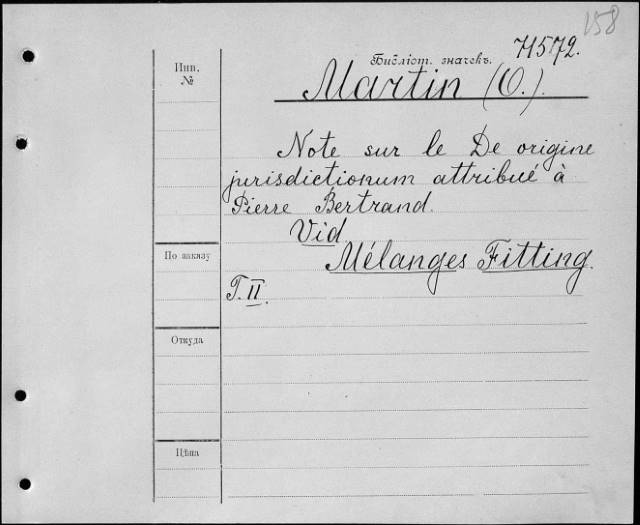 158
Инв.
№
Библіот. значекъ. 71572.
Martin (O.).
Note sur le De origine
jurisdictionum attribué à
Pierre Bertrand.
Vid.
Mélanges Fitting.
По заказу
T. II.
Откуда
Цѣна